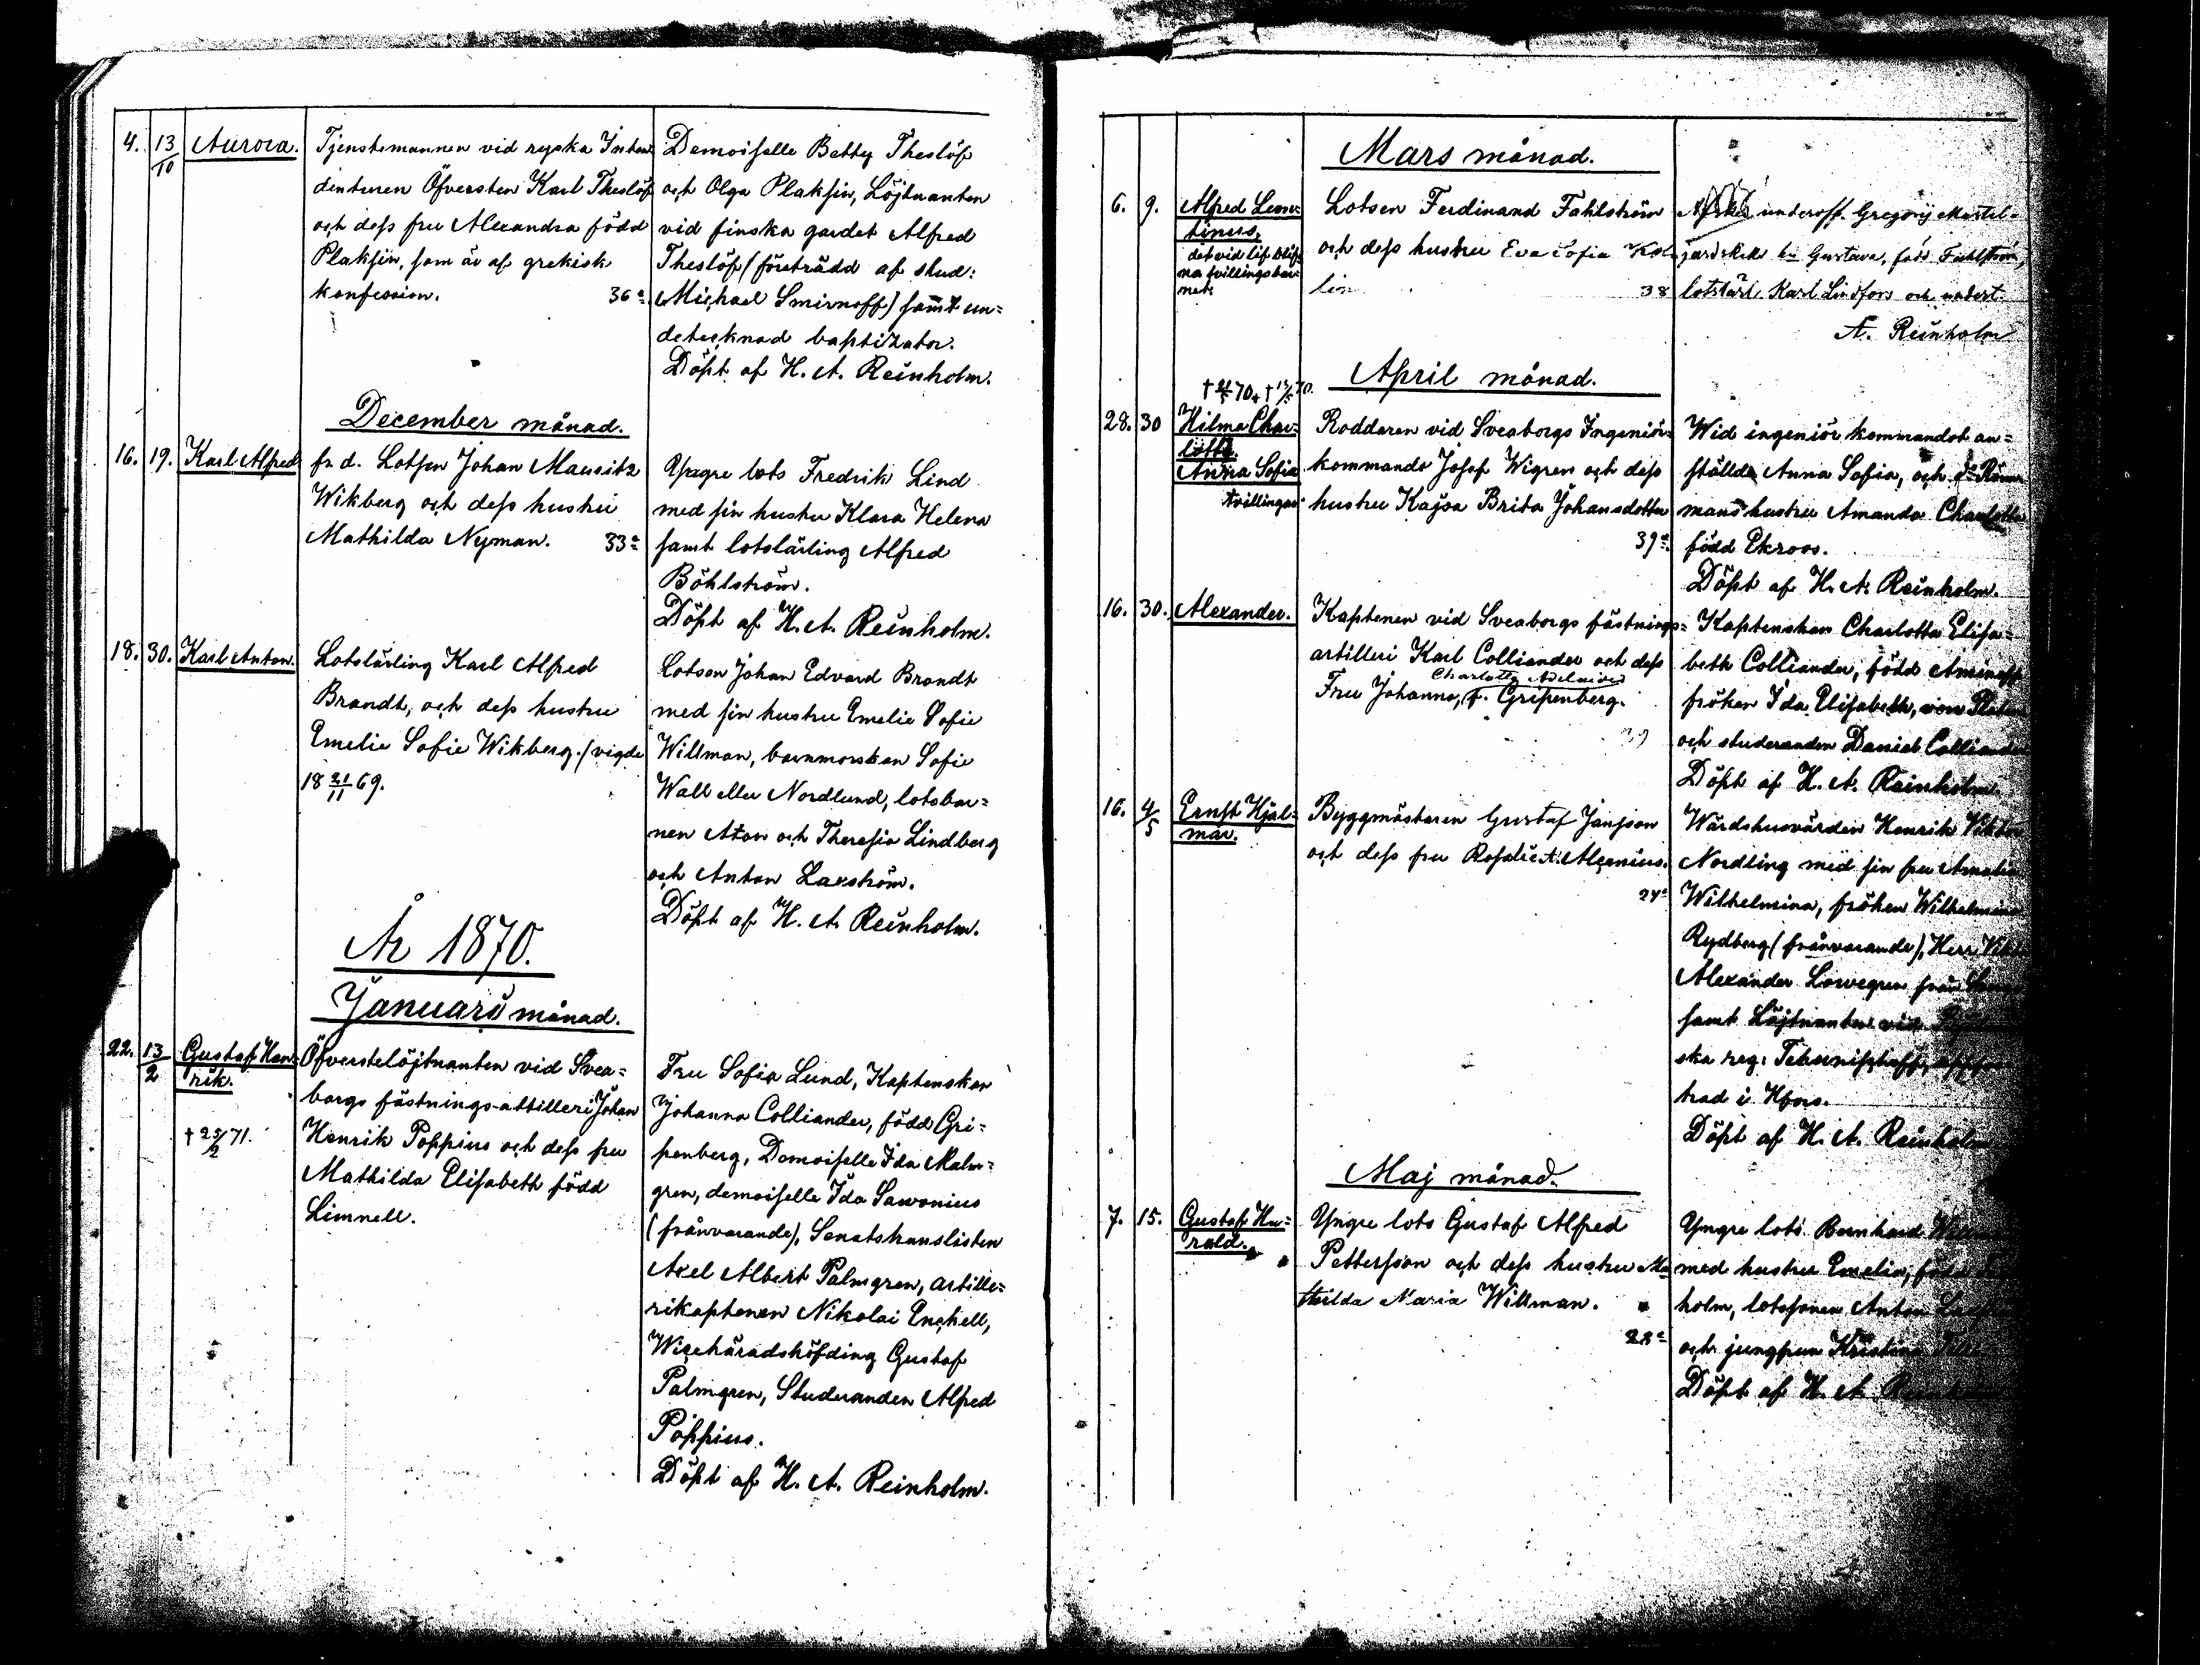 4. 13/10 Aurora. Tjenstemannen vid ryska Inten
denturen Öfversten Karl Theslöf
och dess fru Alexandra född
Plaksin, som är af grekisk
konfession. 36a
Demoiselle Betty Theslöf
och Olga Plaksin, Löjtnanten
vid finska gardet Alfred
Theslöf (företrädd af stud:
Michael Smirnoff) samt un=
detecknad baptizator.
Döpt af H. A. Reinholm.
December månad.
16. 19. Karl Alfred fr. d. Lotsen Johan Mauritz
Wikberg och dess hustru
Mathilda Nyman. 33a
Yngre lots Fredrik Lind
med sin hustru Klara Helena
samt lotslärling Alfred
Böhlström.
Döpt af H. A. Reinholm.
18. 30. Karl Anton. Lotslärling Karl Alfred
Brandt, och dess hustru
Emelie Sofie Wikberg. (vigde
18 21/11 69.
Lotsen Johan Edvard Brandt
med sin hustru Emelie Sofie
Willman, barnmorskan Sofie
Wall eller Nordlund, lotsbar=
nen Aton och Theresia Lindberg
och Anton Laxström.
Döpt af H. A. Reinholm.
År 1870.
Januarii månad.
22. 13/2 Gustaf Hen=
rik.
† 25/2 71.
Öfverstelöjtnanten vid Svea=
borgs fästnings-attilleri Johan
Henrik Poppius och dess fru
Mathilda Elisabeth född
Limnell.
Fru Sofia Lund, Kaptenskan
Johanna Colliander, född Gri=
penberg, Demoiselle Ida Malm=
gren, demoiselle Ida Sawonius
(frånvarande), Senatskanslisten
Axel Albert Palmgren, artille=
rikaptenen Nikolai Enckell,
Wicehäradshöfding Gustaf
Palmgren, Studeranden Alfred
Poppius.
Döpt af H. A. Reinholm.
Mars månad.
6. 9. Alfred Leon=
tinus,
det vid lif blif
na tvillingsbar
net.
Lotsen Ferdinand Fahlström
och dess hustru Eva Sofia Kol
lin 38
underoff. Gregorij
Gustava, född Fahlström,
lotslärl. Karl Lindfors och undert.
A. Reinholm
April månad.
28. 30 Hilma Char=
lotte.
Anna Sofia
tvillingar
Roddaren vid Sveaborgs Ingeniör=
kommando Josef Wigren och dess
hustru Kajsa Brita Johansdotter
39a
Wid ingeniör kommandot an=
ställde Anna Sofia, och
mans hustru Amanda Charlotta
född Ekroos.
Döpt af H. A. Reinholm.
16. 30. Alexander. Kaptenen vid Sveaborgs fästnings=
artilleri Karl Colliander och dess
Charlotta Adelaide
Fru Johanna, f. Gripenberg.
Kaptenskan Charlotta Elisa=
beth Colliander, född Aminoff
fröken Ida Elisabeth, von
och studeranden Daniel Colliander
Döpt af H. A. Reinholm.
16. 4/5 Ernst Hjal=
mar.
Byggmästaren Gustaf Jansson
och dess fru Rosalie A. Alcenius.
24a
Wärdshusvärden Henrik Viktor
Nordling med sin fru Amalia
Wilhelmina, fröken Wilhelmina
Rydberg (frånvarande), Herr
Alexander Löwegren från
samt Löjtnanten vid
ska reg:
trad i Hfors.
Döpt af H. A. Reinholm
Maj månad.
7. 15. Gustaf Ha=
rald.
Yngre lots Gustaf Alfred
Pettersson och dess hustru Ma
thilda Maria Willman.
28a
Yngre lots Bernhard
med hustru Emelia, född
holm, lotssonen Anton
och jungfrun Kristina
Döpt af H. A. Reinholm